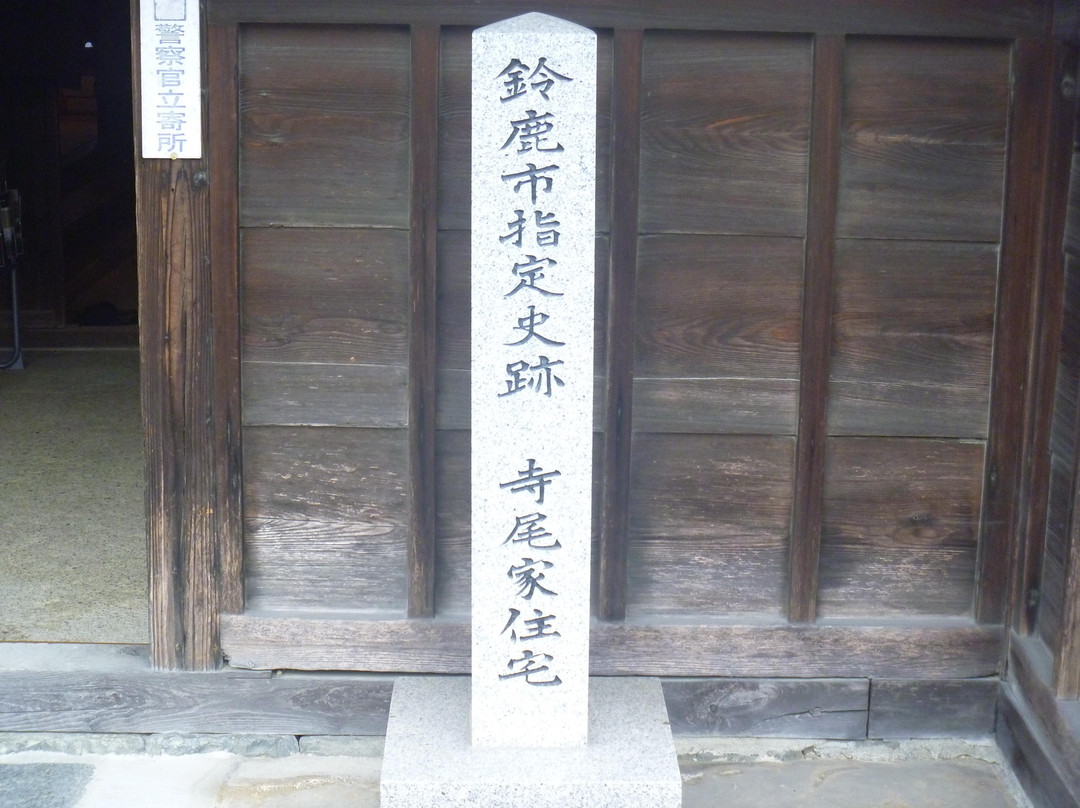 鈴鹿市指定史跡 寺尾家住宅
警察官立寄所